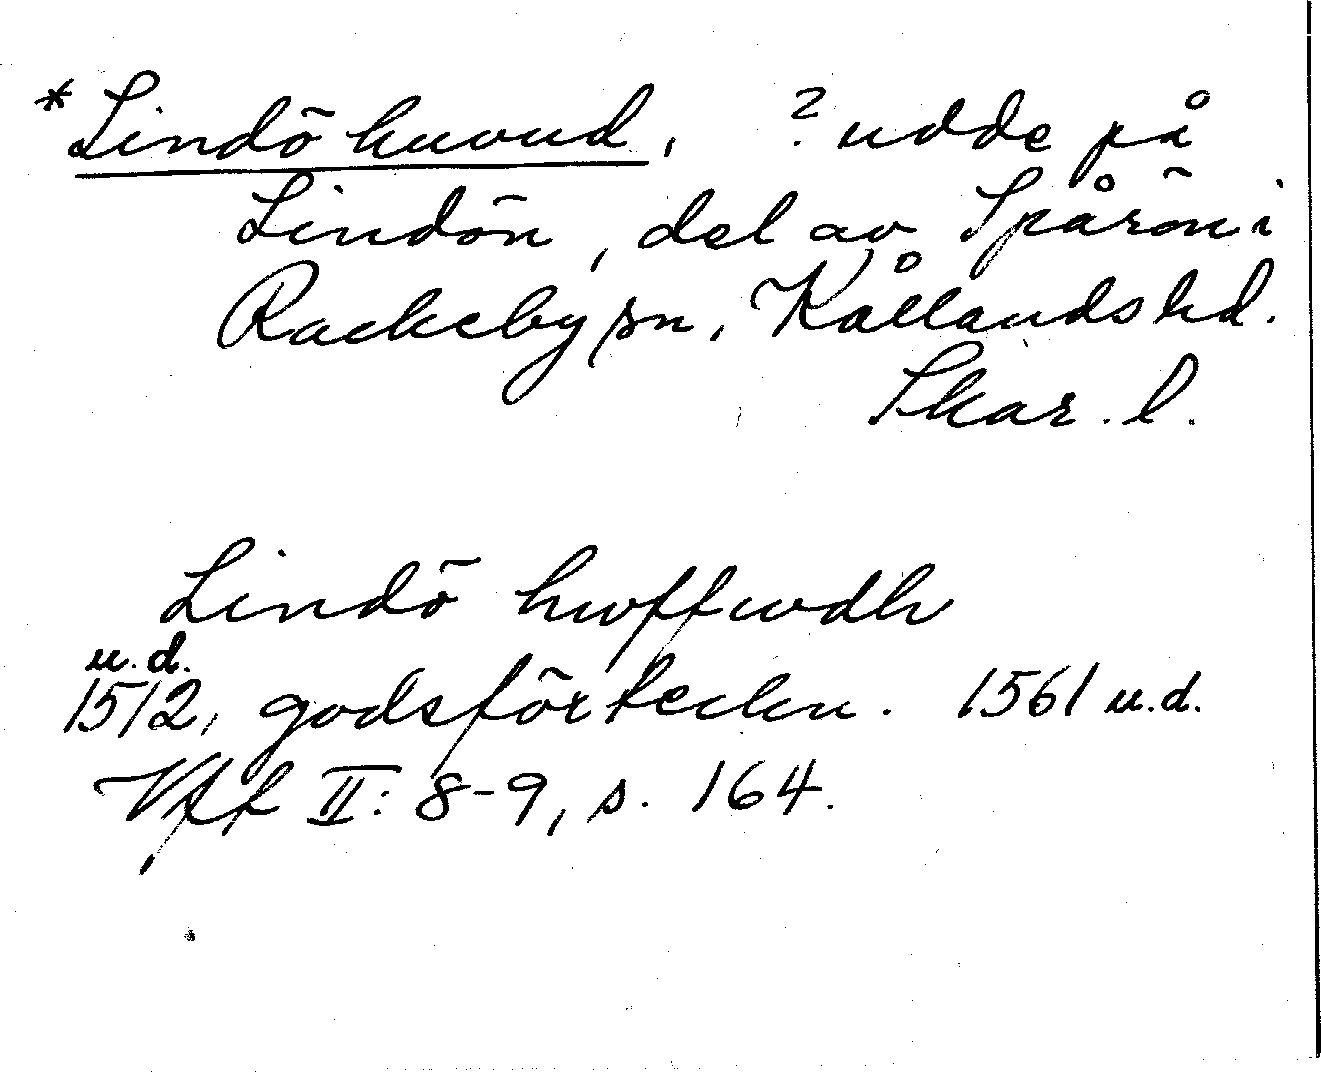 *Lindö huvud, ? udde på
Lindön, del av Spårön i
Rackeby sn, Kållands hd.
Skar. l.
Lindö hwffwdh
u.d.
1512, godsförteckn. 1561 u.d.
Vff II: 8-9, s. 164.